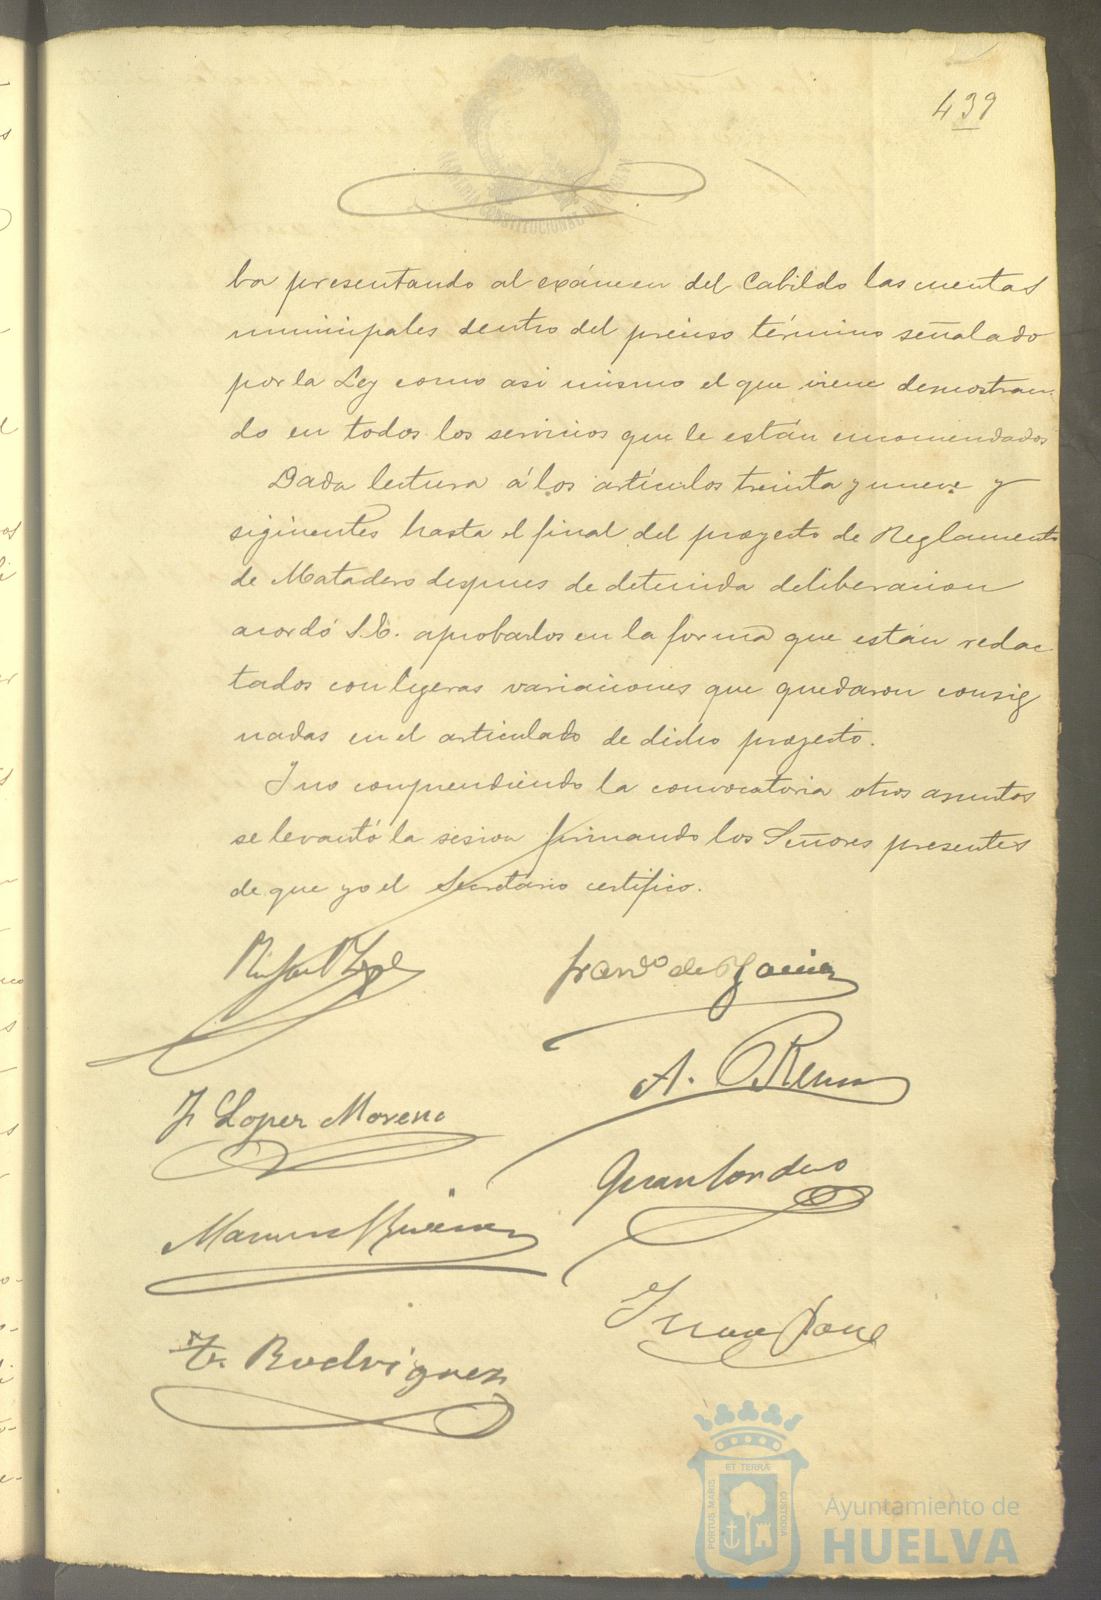 439
ALCALDIA CONSTITUCIONAL DE HUELVA
ba presentando al exámen del Cabildo las cuentas
municipales dentro del preciso término señalado
por la Ley como asi mismo el que viene demostran-
do en todos los servicios que le están encomendados
Dada lectura á los artículos treinta y nueve y
siguientes hasta el final del proyecto de Reglamento
de Matadero despues de detenida deliberacion
acordó S.E. aprobarlos en la forma que están redac
tados con ligeras variaciones que quedaron consig
nadas en el articulado de dicho proyecto.
Y no comprendiendo la convocatoria otros asuntos
se levantó la sesion firmando los Señores presentes
de que yo el Secretario certifico.
Franco de
A.
J Lopez Moreno
Juan Cordero
Manuel
Juan
F. Rodriguez
ET TERRÆ
PORTUS MARIS
CUSTODIA
Ayuntamiento de
HUELVA